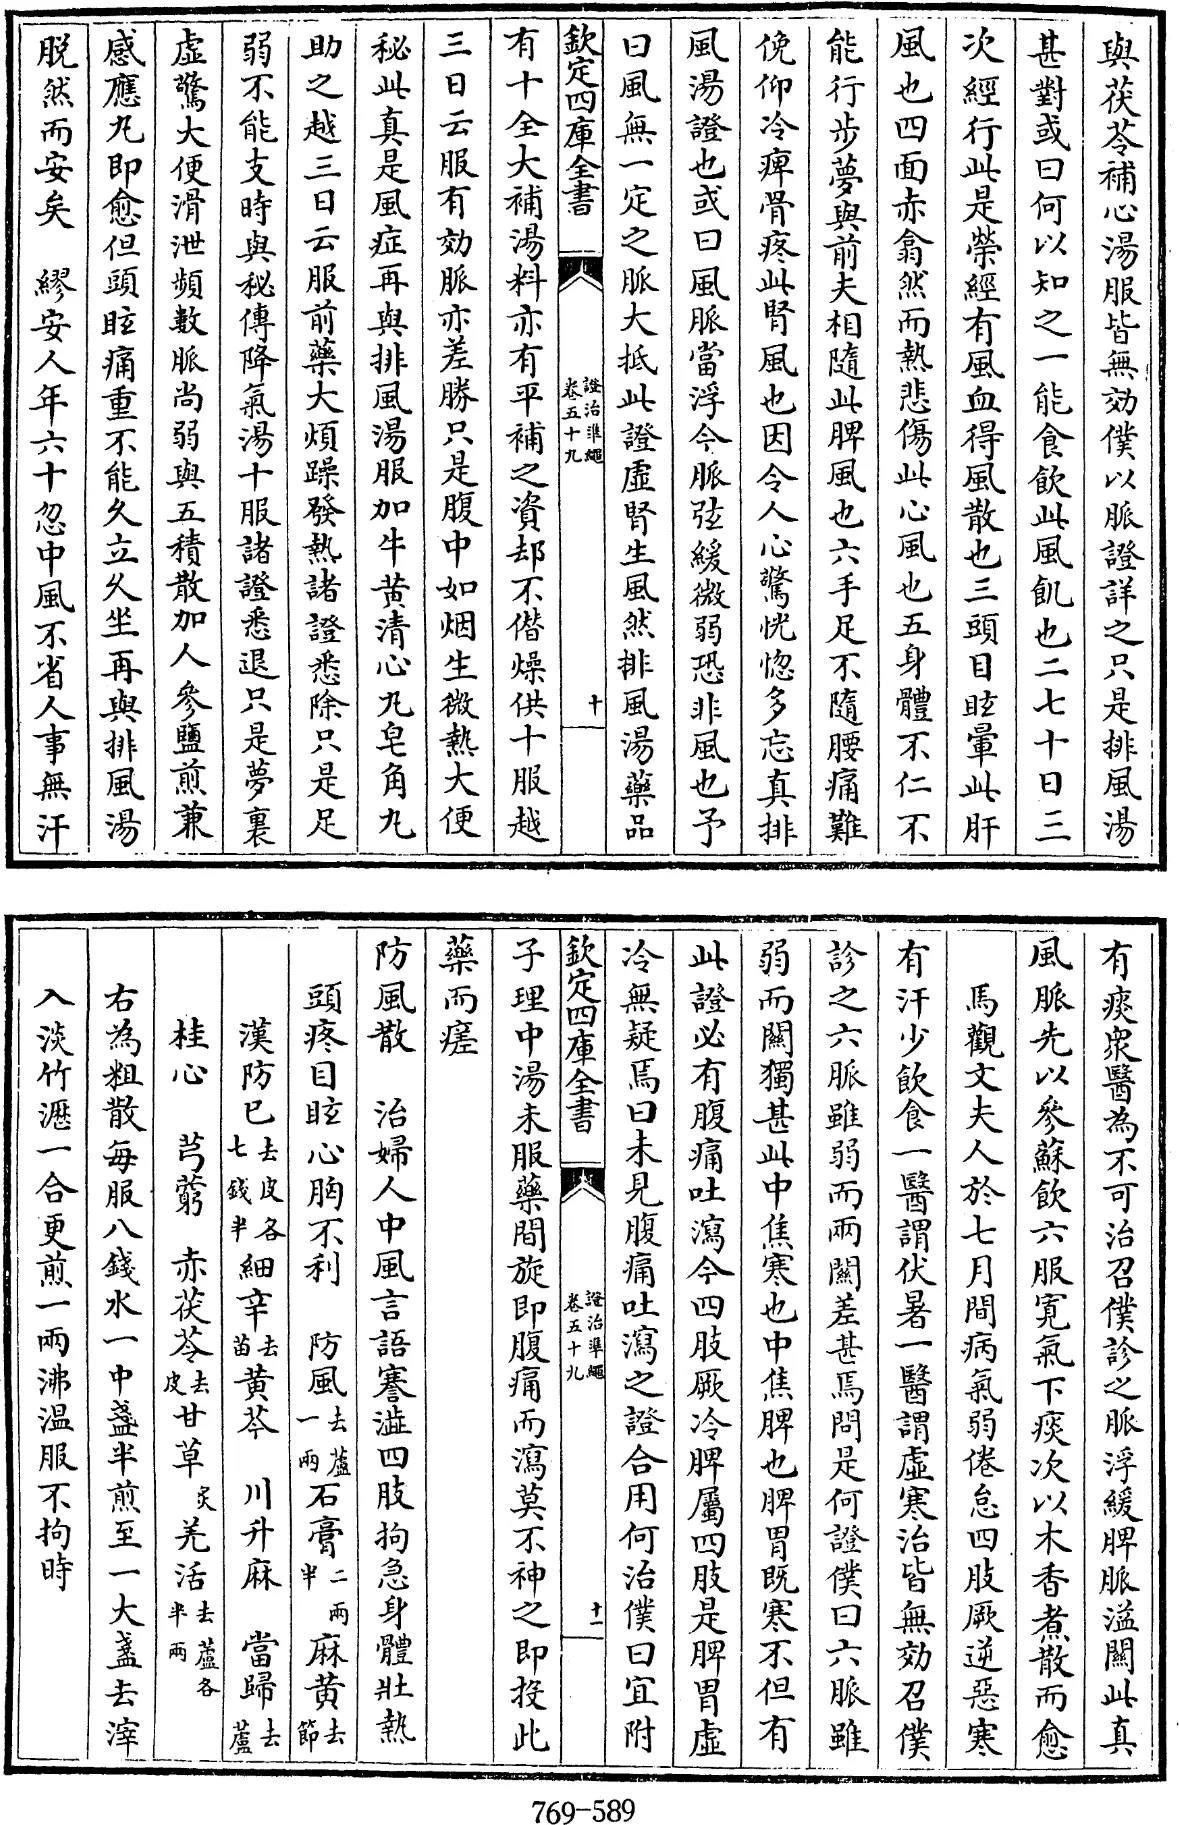 與茯苓補心湯服皆無効僕以脈證詳之只是排風湯
甚對或曰何以知之一能食飲此風飢也二七十日三
次經行此是榮經有風血得風散也三頭目眩暈此肝
風也四面赤翕然而熱悲傷此心風也五身體不仁不
能行步夢與前夫相隨此脾風也六手足不隨腰痛難
俛仰冷痺骨疼此腎風也因令人心驚恍惚多忘真排
風湯證也或曰風脈當浮今脈弦緩微弱恐非風也予
曰風無一定之脈大抵此證虛腎生風然排風湯藥品
欽定四庫全書 證治準繩 卷五十九 十
有十全大補湯料亦有平補之資却不僭燥供十服越
三日云服有効脈亦差勝只是腹中如烟生微熱大便
秘此真是風症再與排風湯服加牛黄清心丸皂角丸
助之越三日云服前藥大煩躁發熱諸證悉除只是足
弱不能支時與秘傳降氣湯十服諸證悉退只是夢裏
虛驚大便滑泄頻數脈尚弱與五積散加人參鹽煎兼
感應丸即愈但頭眩痛重不能久立久坐再與排風湯
脫然而安矣 繆安人年六十忽中風不省人事無汗
有痰衆醫為不可治召僕診之脈浮緩脾脈溢關此真
風脈先以參蘇飲六服寛氣下痰次以木香煮散而愈
馬觀文夫人於七月間病氣弱倦怠四肢厥逆惡寒
有汗少飲食一醫謂伏暑一醫謂虛寒治皆無効召僕
診之六脈雖弱而兩關差甚焉問是何證僕曰六脈雖
弱而關獨甚此中焦寒也中焦脾也脾胃既寒不但有
此證必有腹痛吐瀉今四肢厥冷脾屬四肢是脾胃虛
冷無疑焉曰未見腹痛吐瀉之證合用何治僕曰宜附
欽定四庫全書 證治準繩 卷五十九 十一
子理中湯未服藥間旋即腹痛而瀉莫不神之即投此
藥而瘥
防風散 治婦人中風言語蹇澁四肢拘急身體壯熱
頭疼目眩心胸不利 防風去蘆一兩石膏二兩半麻黄去節
漢防已去皮各七錢半細辛去苗黄芩 川升麻 當歸去蘆
桂心 芎藭 赤茯苓去皮甘草炙羌活去蘆各半兩
右為粗散每服八錢水一中盞半煎至一大盞去滓
入淡竹瀝一合更煎一兩沸温服不拘時
769-589